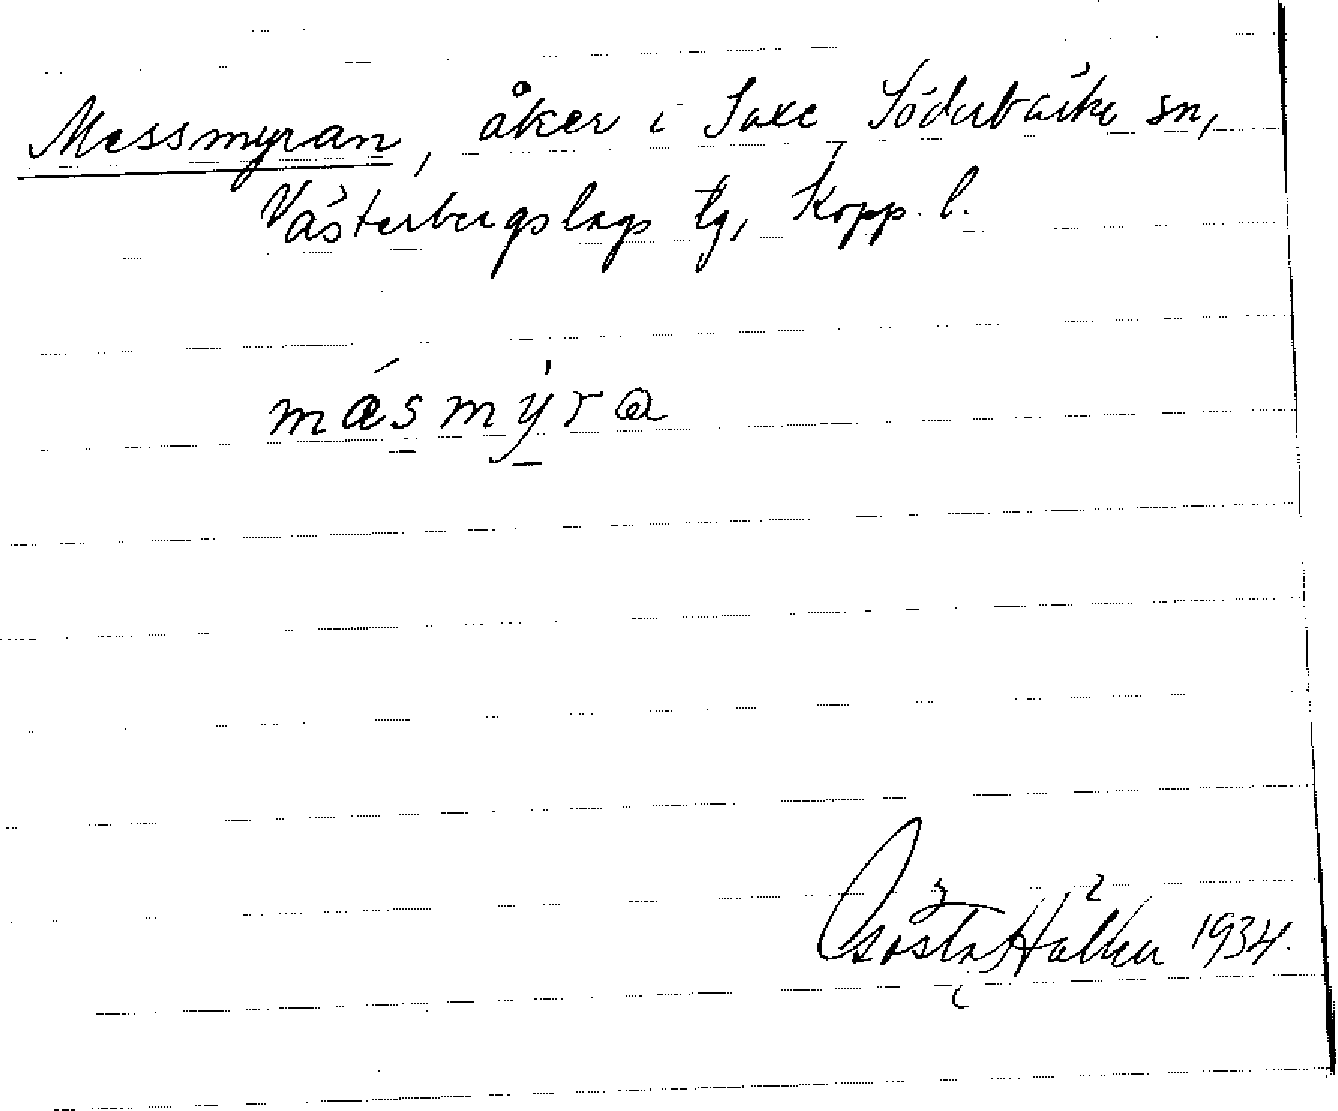 Messmyran, åker i Saxe Söderbärke sn,
Västerbergslags tg, Kopp. l.
mǽsmýra
Gösta Hålken 1934.